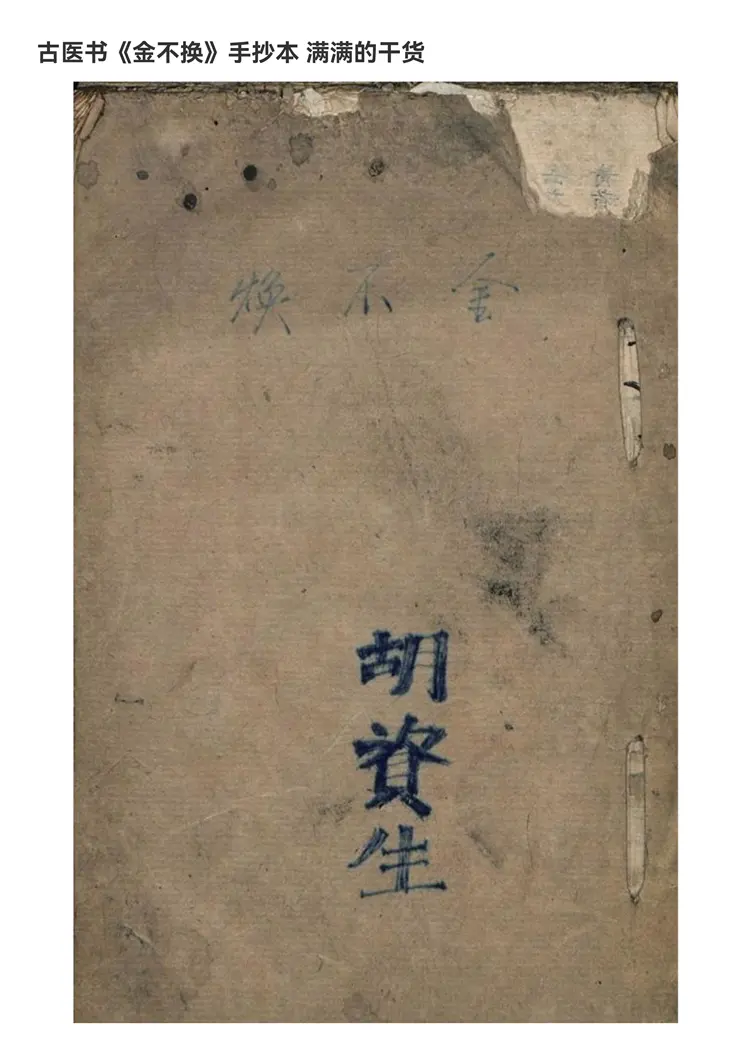 古医书《金不换》手抄本 满满的干货
金不焕
胡資生